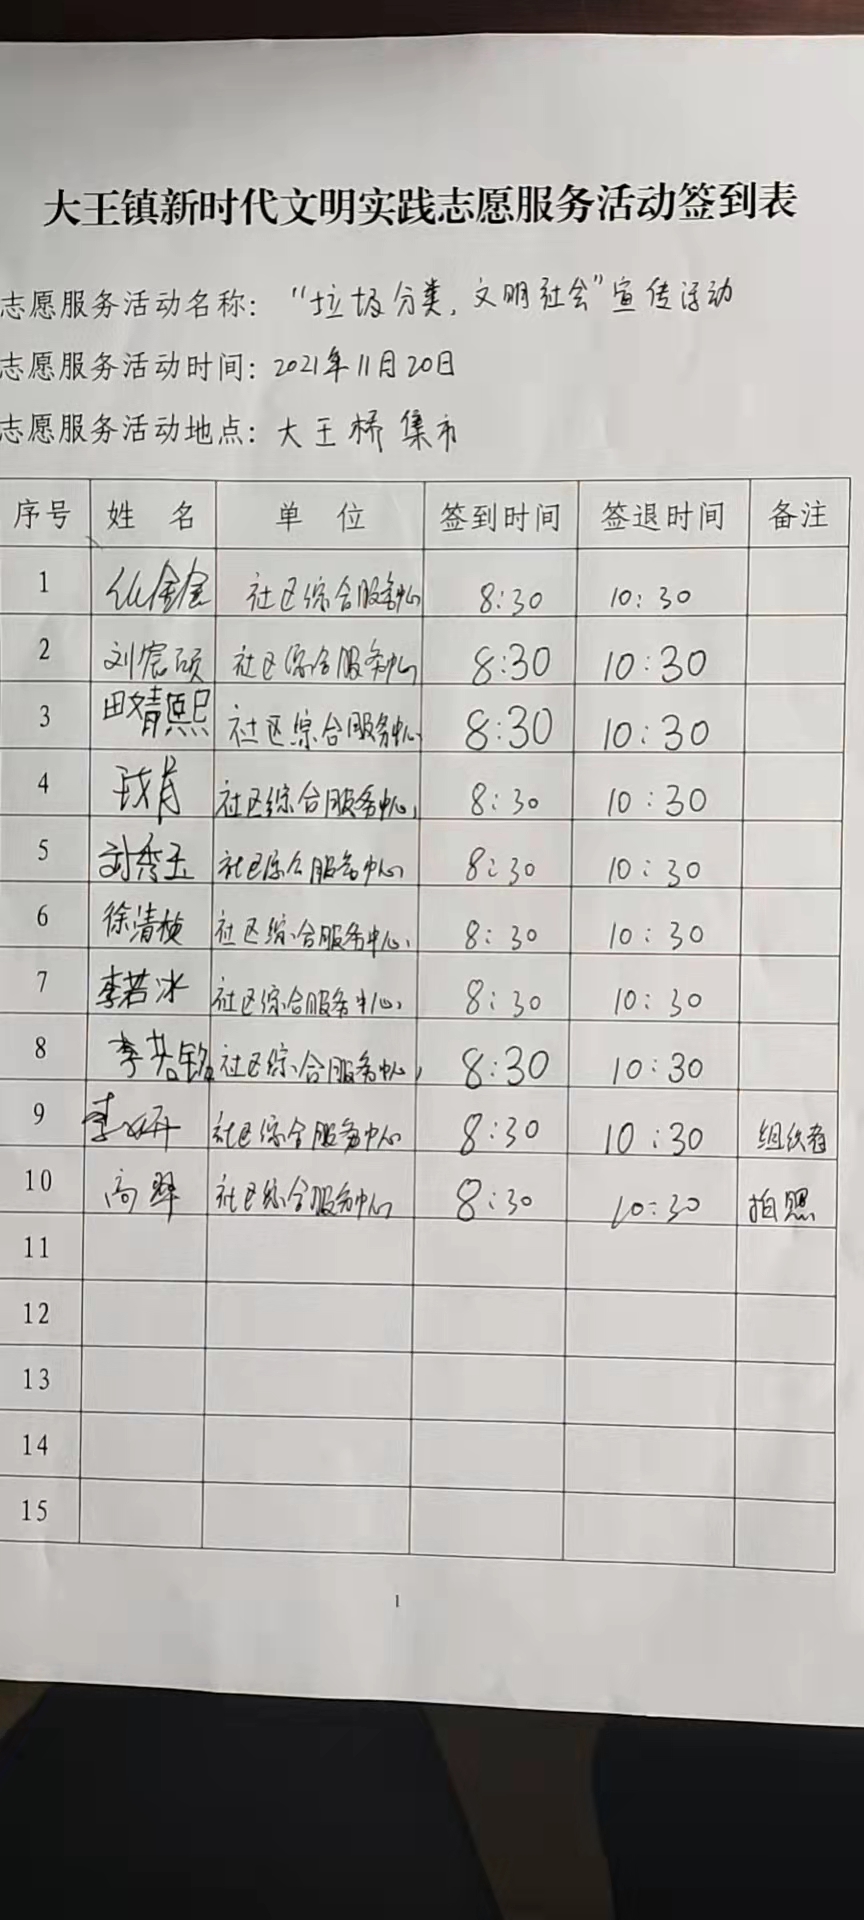 大王镇新时代文明实践志愿服务活动签到表
志愿服务活动名称：“垃圾分类，文明社会”宣传活动
志愿服务活动时间：2021年11月20日
志愿服务活动地点：大王桥集市
序号 姓名 单位 签到时间 签退时间 备注
1 社区综合服务中心 8:30 10:30
2 刘宸硕 社区综合服务中心 8:30 10:30
3 田婧熙 社区综合服务中心 8:30 10:30
4 社区综合服务中心 8:30 10:30
5 刘秀玉 社区综合服务中心 8:30 10:30
6 徐清桢 社区综合服务中心 8:30 10:30
7 李若冰 社区综合服务中心 8:30 10:30
8 李若铭 社区综合服务中心 8:30 10:30
9 李妍 社区综合服务中心 8:30 10:30 组织者
10 高翠 社区综合服务中心 8:30 10:30 拍照
11
12
13
14
15
1